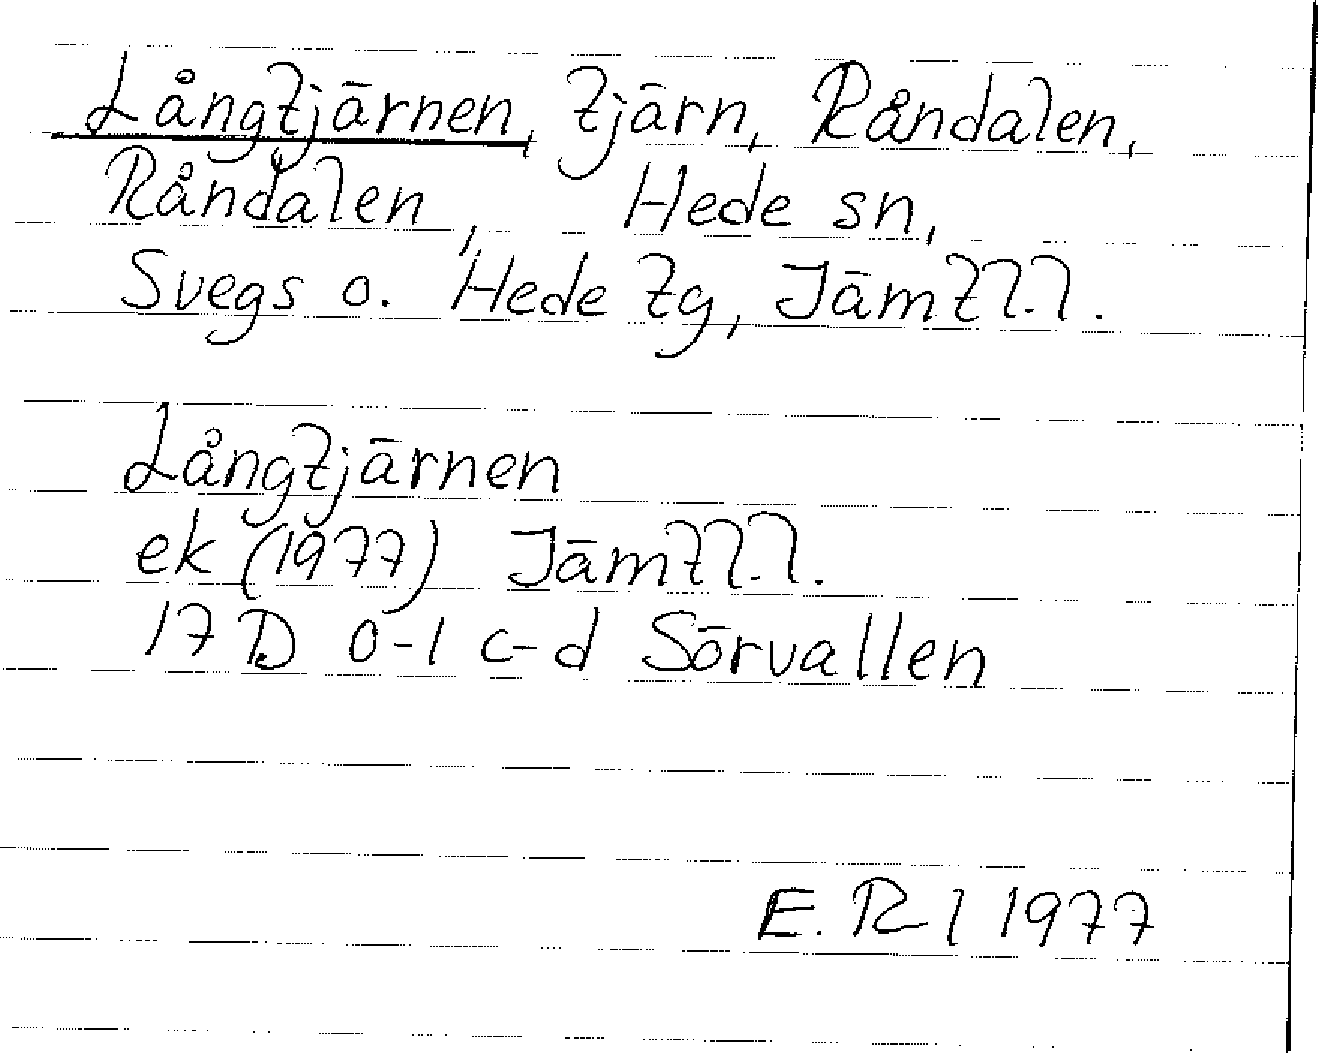 Långtjärnen, tjärn, Råndalen,
Råndalen, Hede sn,
Svegs o. Hede tg, Jämtl.l.
Långtjärnen
ek (1977) Jämtl.l.
17 D 0-1 c-d Sörvallen
E. Rl 1977